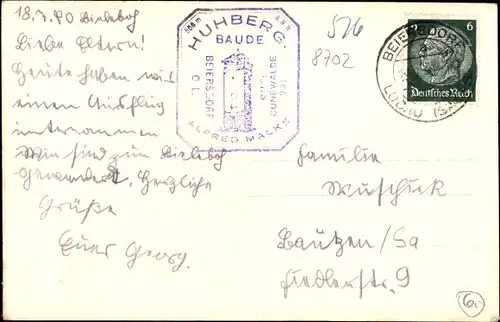 18.7.40 Bieleboh
Liebe Eltern!
Heute haben wir
einen Ausflug
unternommen
Wir sind zum Bieleboh
gewandert, Herzliche
Grüße
Euer Georg.
500 m ü.d.M.
HUHBERG-
BAUDE
BEIERSDORF
O.L.
RUF:
CUNEWALDE
231
ALFRED MALKE
526
8702
BEIERSDORF
LÖBAU (SA.)
6
Deutsches Reich
Familie
Wuschick
Bautzen/Sa
Fiedlerstr. 9
6.-